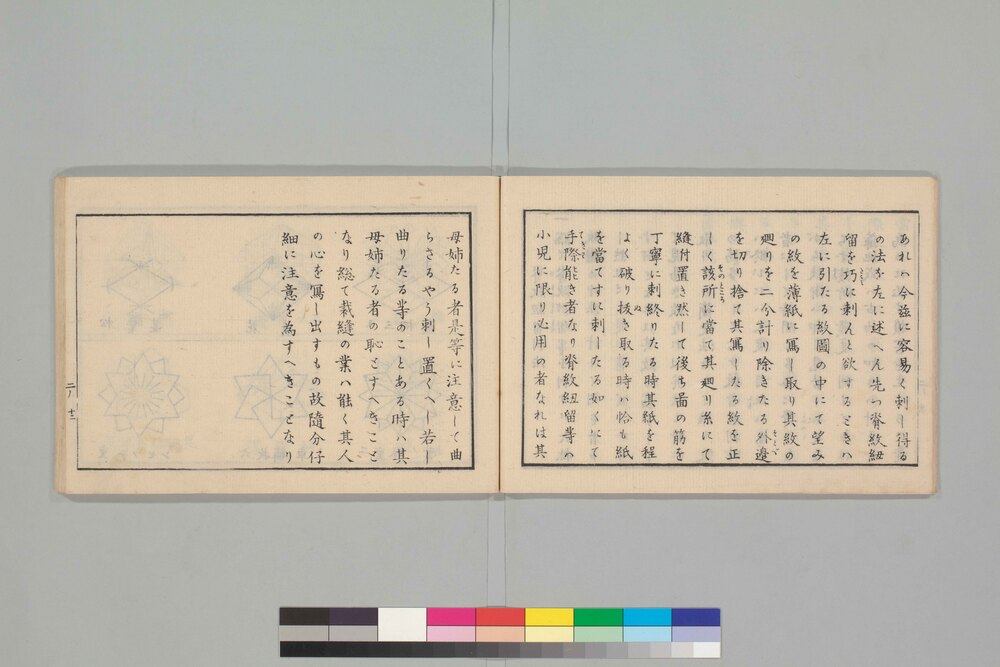 あれハ今茲に容易く刺し得る
の法を左に述へん先つ脊紋紐
留を巧に刺んと欲するときハ
左に引たる紋圖の中にて望み
の紋を薄紙に寫し取り其紋の
廻りを二分計り除きたる外邉
を切り捨て其寫したる紋を正
しく該所に當て其廻り糸にて
縫附置き然して後ち畐の筋を
丁寧に刺終りたる時其紙を程
よく破り抜き取る時ハ恰も紙
を當てすに刺したる如くにて
手際能き者なり脊紋紐留等ハ
小児に限り必用の者なれは其
母姉たる者是等に注意して曲
らさるやう刺し置くへし若し
曲りたる半のことある時ハ其
母姉たる者の恥とすへきこと
なり総て裁縫の業ハ能く其人
の心を寫し出すもの故隨分仔
細に注意を為すへきことなり
二ノ十三